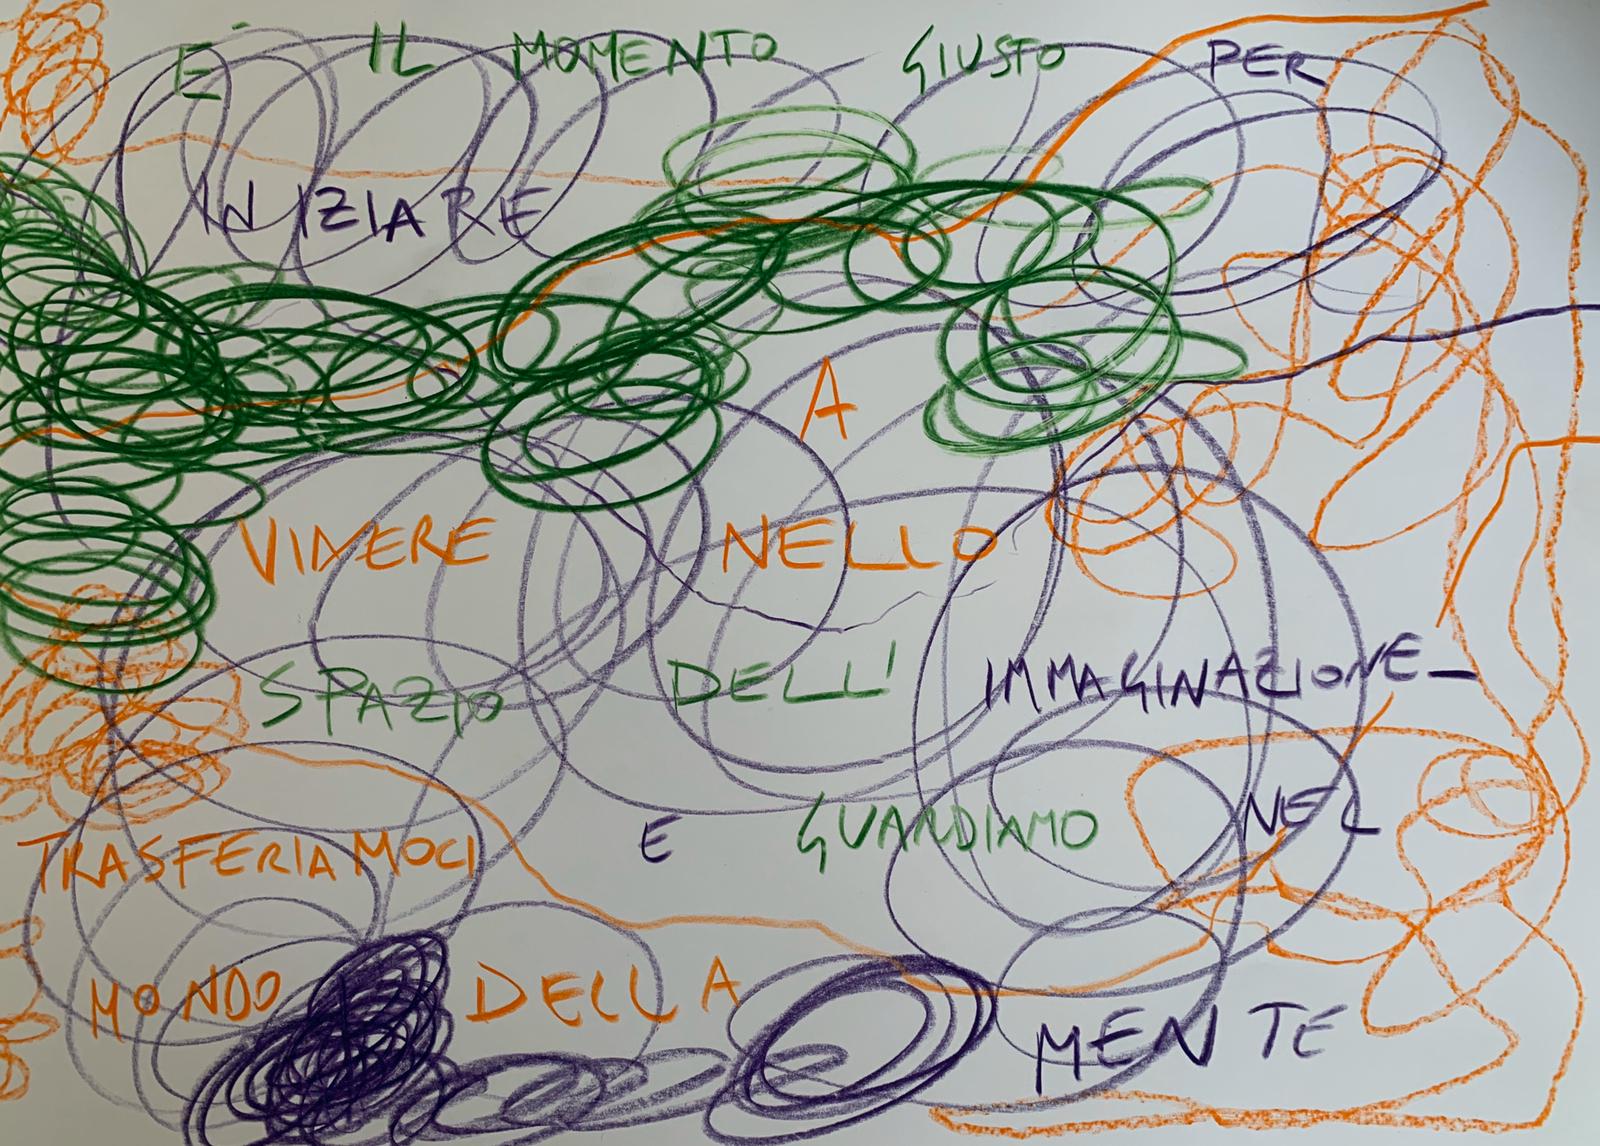 È IL MOMENTO GIUSTO PER
INIZIARE
A
VIVERE NELLO
SPAZIO DELL' IMMAGINAZIONE–
TRASFERIAMOCI E GUARDIAMO NEL
MONDO DELLA MENTE